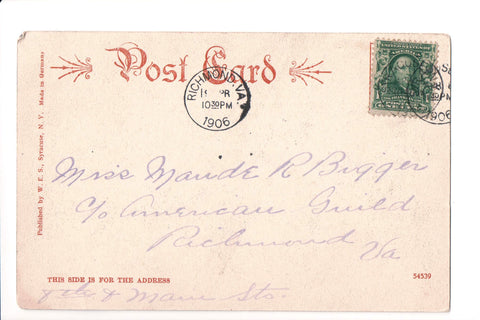 Post Card
RICHMOND, VA.
10 30 PM
1906
1906
Published by W. E. S., Syracuse, N. Y. Made in Germany
Miss Maude R Bigger
c/o American Guild
Richmond
Va
THIS SIDE IS FOR THE ADDRESS
54539
& Main Sts.